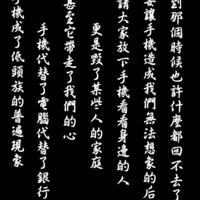 到那個時候也許什麼都回不去了
要讓手機造成我們無法想象的后
請大家放下手機看看身邊的人
更是毀了某些人的家庭
甚至它帶走了我們的心
手機代替了電腦代替了銀行
機成了低頭族的普遍現象